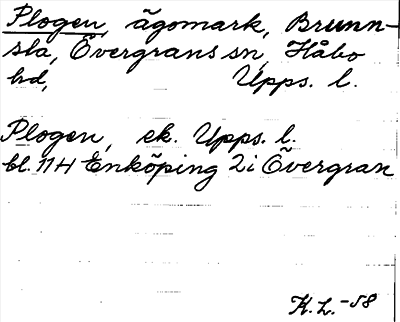 Plogen, ägomark, Brunn-
sta, Övergrans sn, Håbo
hd, Upps. l.
Plogen, ek. Upps. l.
bl. 11 H Enköping 2i Övergran
K. L. -58